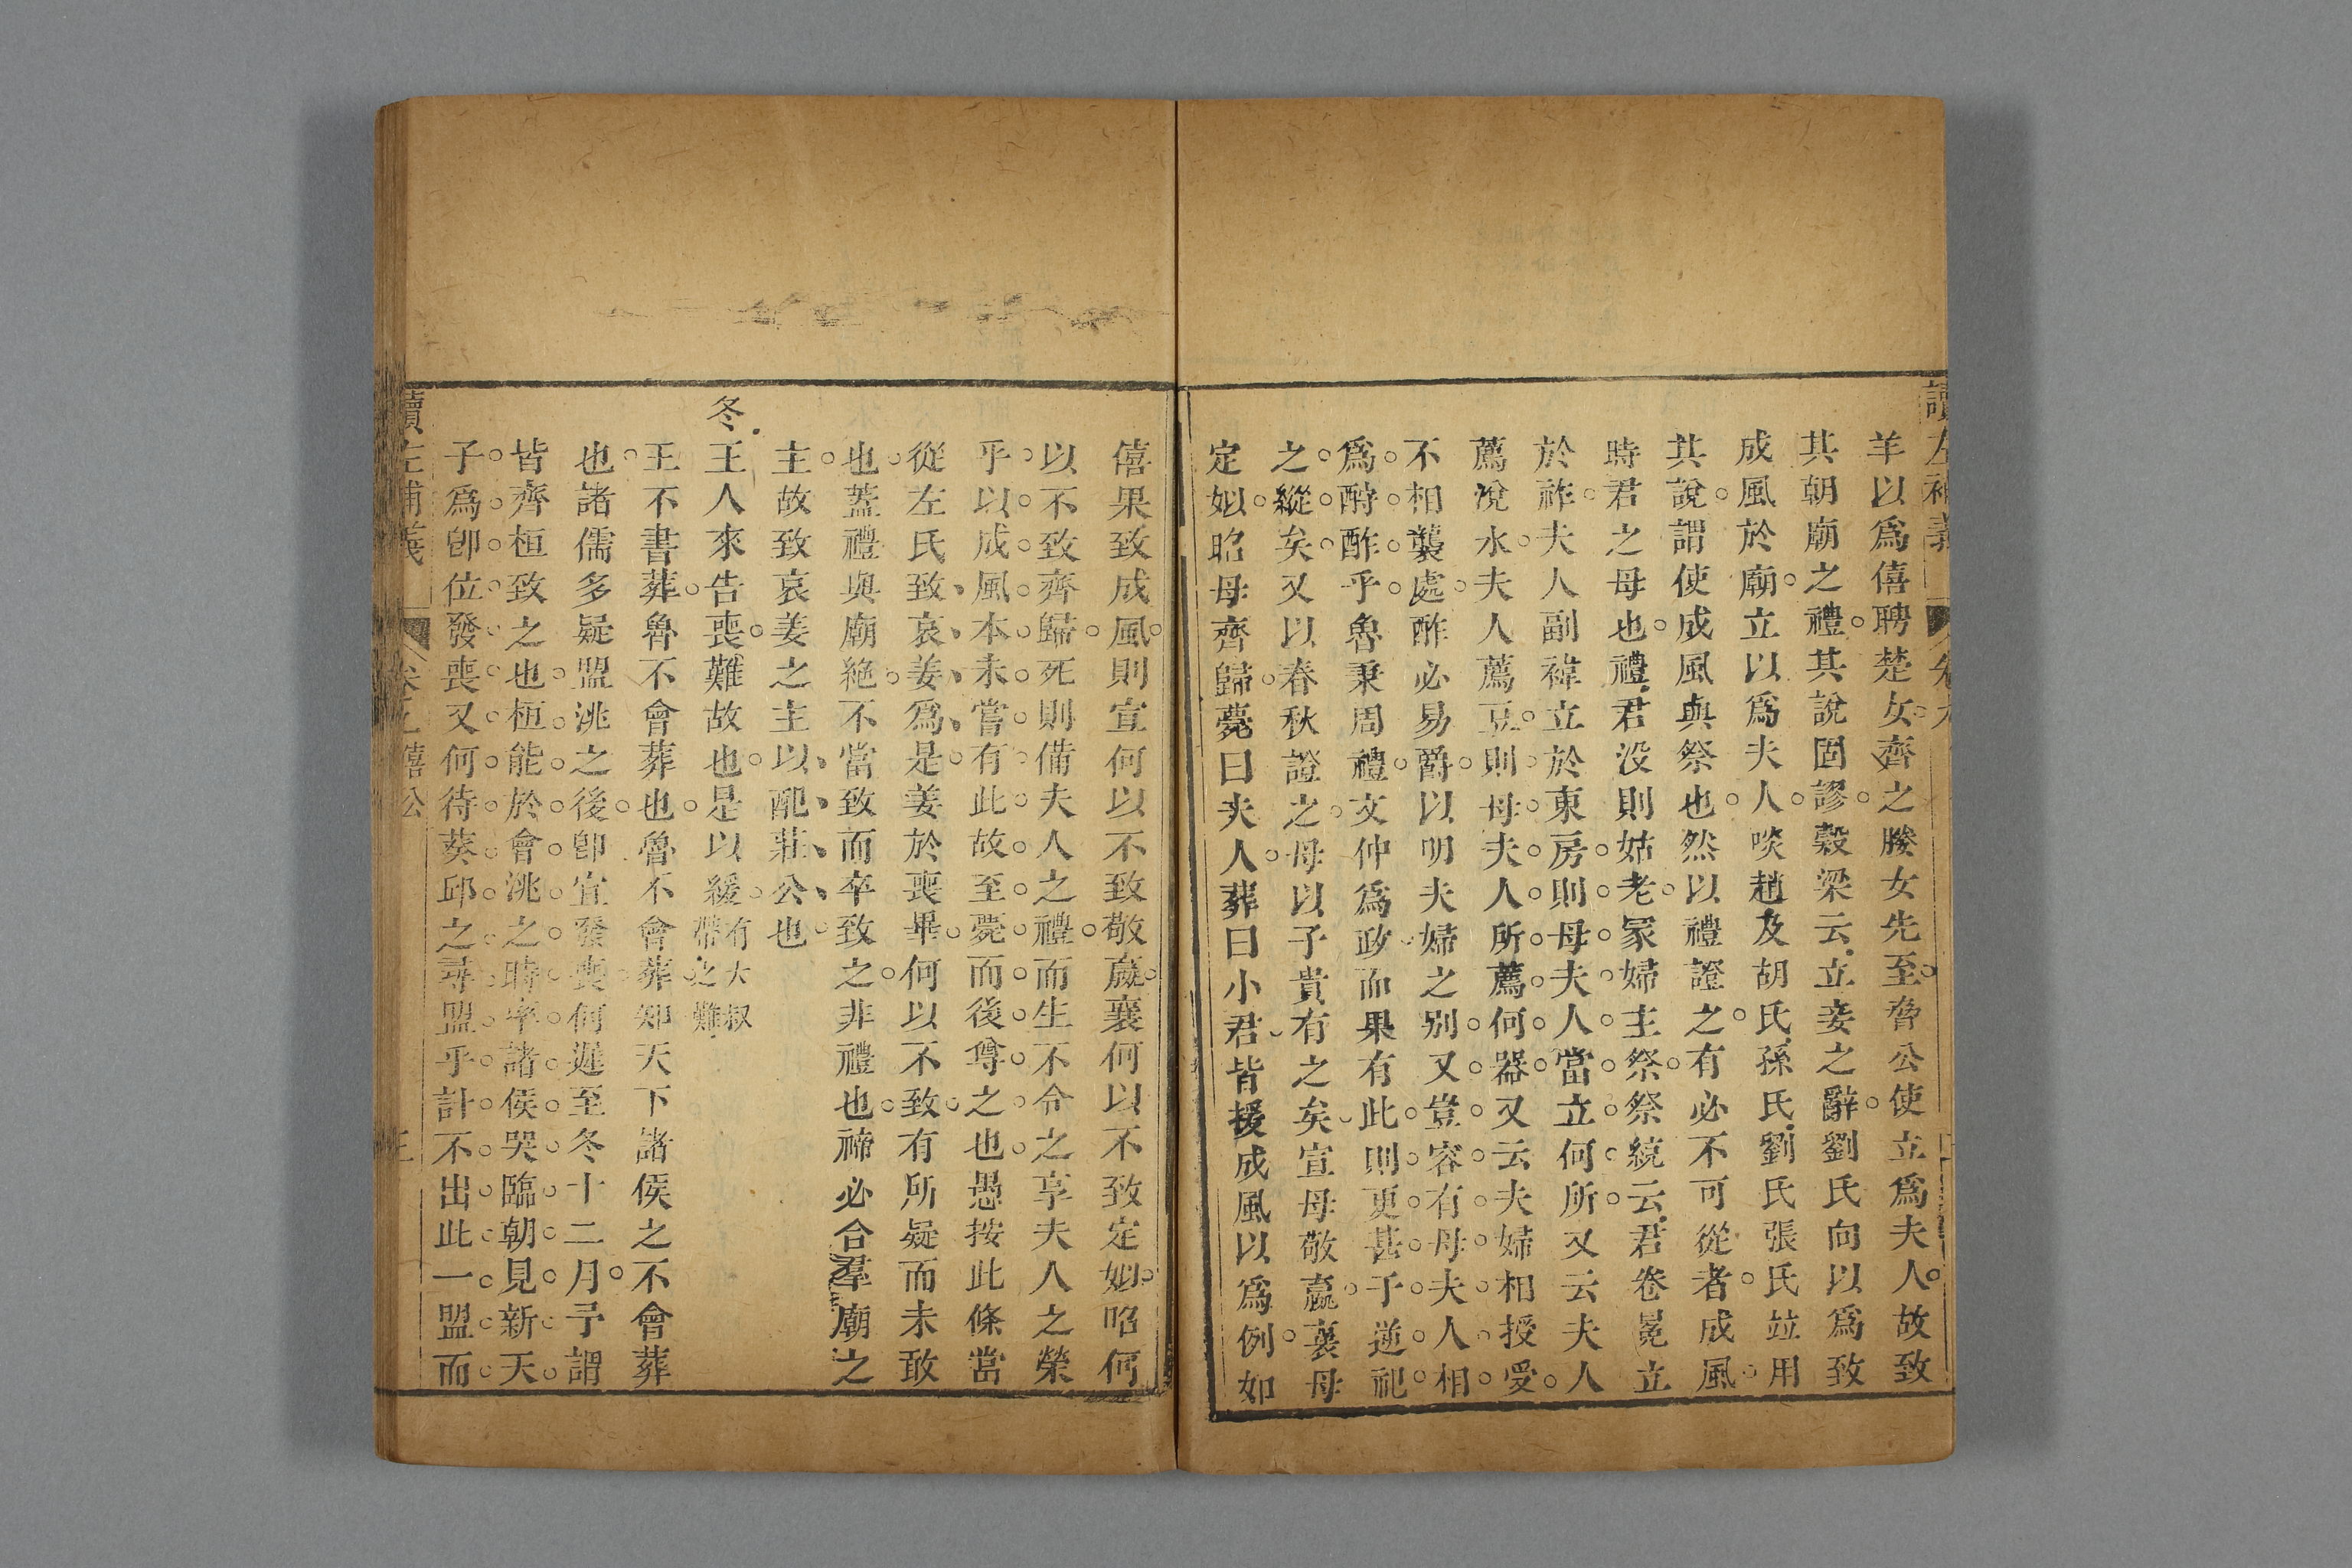 讀左補義
羊以爲僖聘楚女齊之媵女先至脅公使立爲夫人故致
其朝廟之禮其說固謬穀梁云立妾之辭劉氏向以爲致
成風於廟立以爲夫人啖趙及胡氏孫氏劉氏張氏竝用
其說謂使成風與祭也然以禮證之有必不可從者成風
時君之母也禮君没則姑老冢婦主祭祭統云君卷冕立
於祚夫人副褘立於東房則母夫人當立何所又云夫人
薦涗水夫人薦豆則母夫人所薦何器又云夫婦相授受
不相襲處酢必易爵以明夫婦之别又豈容有母夫人相
爲酧酢乎魯秉周禮文仲爲政而果有此則更甚于逆祀
之縱矣又以春秋證之母以子貴有之矣宣母敬嬴襄母
定姒昭母齊歸薨曰夫人葬曰小君皆援成風以爲例如
僖果致成風則宣何以不致敬嬴襄何以不致定姒昭何
以不致齊歸死則備夫人之禮而生不令之享夫人之榮
乎以成風本未嘗有此故至薨而後尊之也愚按此條當
從左氏致哀姜爲是姜於喪畢何以不致有所疑而未敢
也蓋禮與廟絶不當致而卒致之非禮也禘必合羣廟之
主故致哀姜之主以配莊公也
冬王人來告喪難故也是以緩有大叔帶之難
王不書葬魯不會葬也魯不會葬知天下諸侯之不會葬
也諸儒多疑盟洮之後卽宜發喪何遲至冬十二月予謂
皆齊桓致之也桓能於會洮之時率諸侯哭臨朝見新天
子爲卽位發喪又何待葵邱之尋盟乎計不出此一盟而
讀左補義
僖公